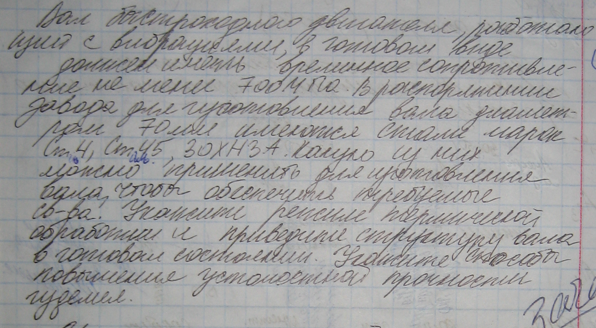 Вал быстроходного двигателя, работаю
щий с вибрациями, в готовом виде
должен иметь временное сопротивле-
ние не менее 700 МПа. В распоряжении
завода для изготовления вала диамет-
ром 70мм имеются стали марок
Ст.4, Ст.45, 30ХН3А. Какую из них
можно применить для изготовления
вала, чтобы обеспечить требуемые
св-ва. Укажите режим термической
обработки и приведите структуру вала
в готовом состоянии. Укажите способы
повышения усталостной прочности
изделия.